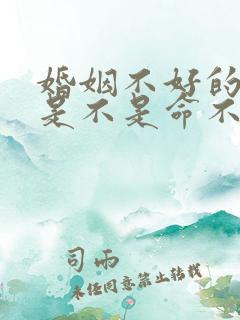 婚姻不好的
是不是命不
司雨
未经同意禁止转载